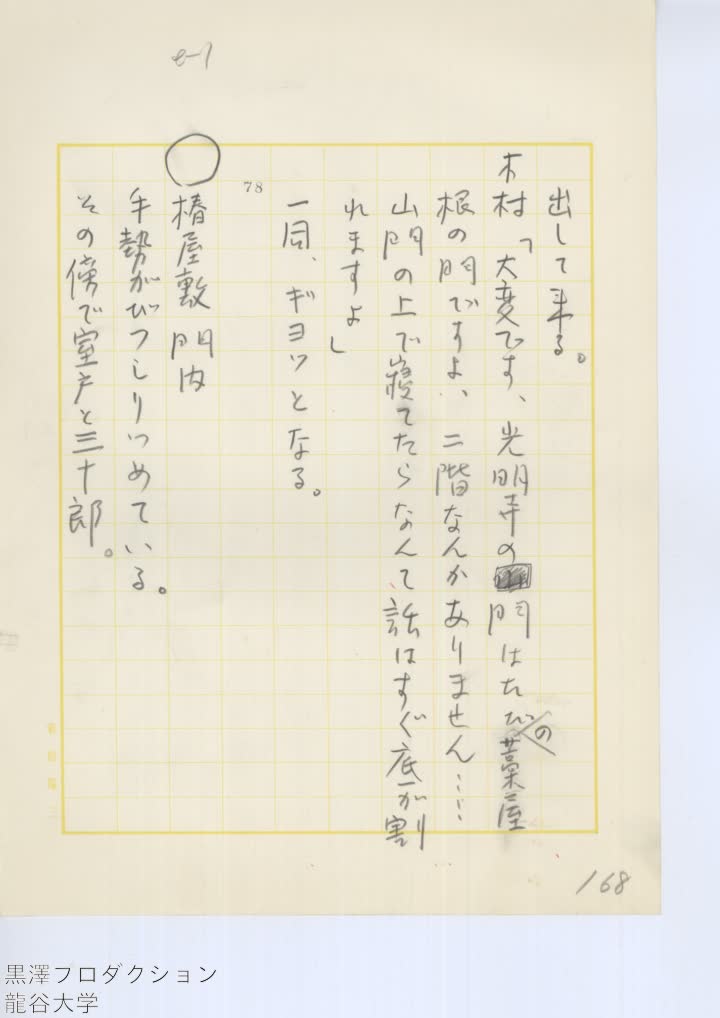 e-1
出して来る。
木村「大変です、光明寺の門はたゞの藁屋
根の門ですよ、二階なんかありません……
山門の上で寝てたらなんて、話はすぐ底が割
れますよ」
一同、ギヨツとなる。
78
○
椿屋敷 門内
手勢がびつしりつめている。
その傍で室戸と三十郎。
168
黒澤プロダクション
龍谷大学